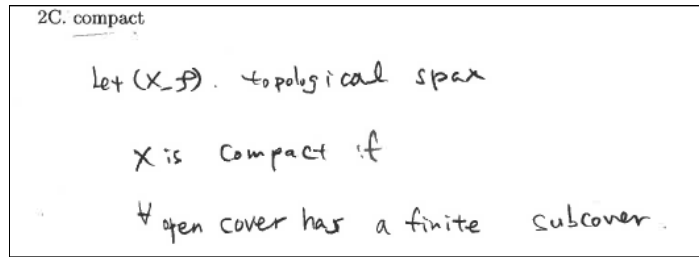 2C. compact
Let (X, 𝒯). topological space
X is compact if
∀ open cover has a finite subcover.